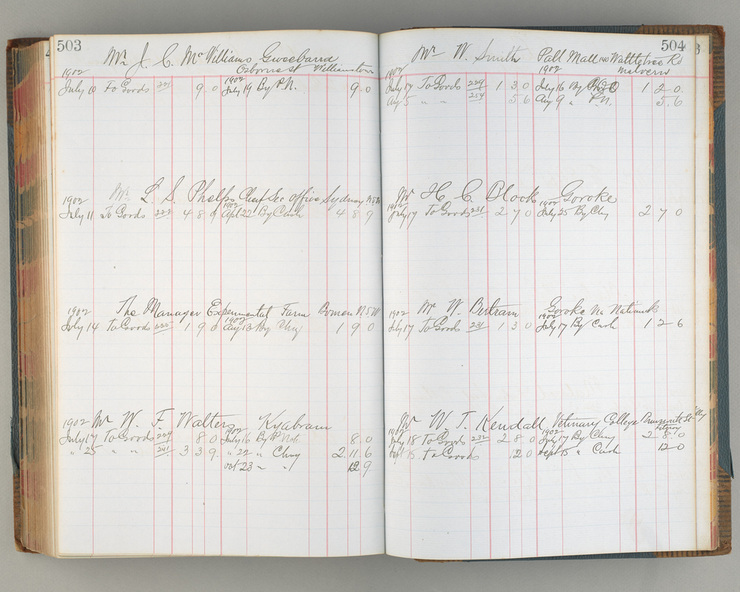 503
Mr J. C. McWilliams
Osborne St Williamstown
1902 1902
July 10 To Goods 9 0 July 19 By P.N. 9 0
L. S. Phelps Chief Sec Office Sydney NSW
1902 1902
July 11 To Goods 223 4 8 9 Apl 22 By Cash 4 8 9
The Manager Experimental Farm Bomen N.S.W
1902 1902
July 14 To Goods 1 9 0 Aug 1 9 0
Mr W. F. Walter Kyabram
1902 1902
July 17 To Goods 8 0 July 16 By P. Note 8 0
" 25 " " 241 3 3 9 " 22 " Chq 2 11 6
Oct 23 " " 12 9
504
Mr W. Smith Pall Mall Wattletree Rd
Malvern
1902 1902
July 17 To Goods 229 1 3 0 July 16 By 1 2 0
Aug 5 " " 254 5 6 Aug 9 " P.N. 5 6
Mr H. C. Block Goroke
1902 1902
July 17 To Goods 231 2 7 0 July 25 By Chq 2 7 0
Mr W. Butram Goroke
1902 1902
July 17 To Goods 231 1 3 0 July 17 By Cash 1 2 6
Mr W. T. Kendall Vetinary College Brunswick St
Fitzroy
1902 1902
July 18 To Goods 232 2 8 0 July 17 By Chq 2 8 0
Sept 15 To Goods 12 0 Sept 15 " Cash 12 0